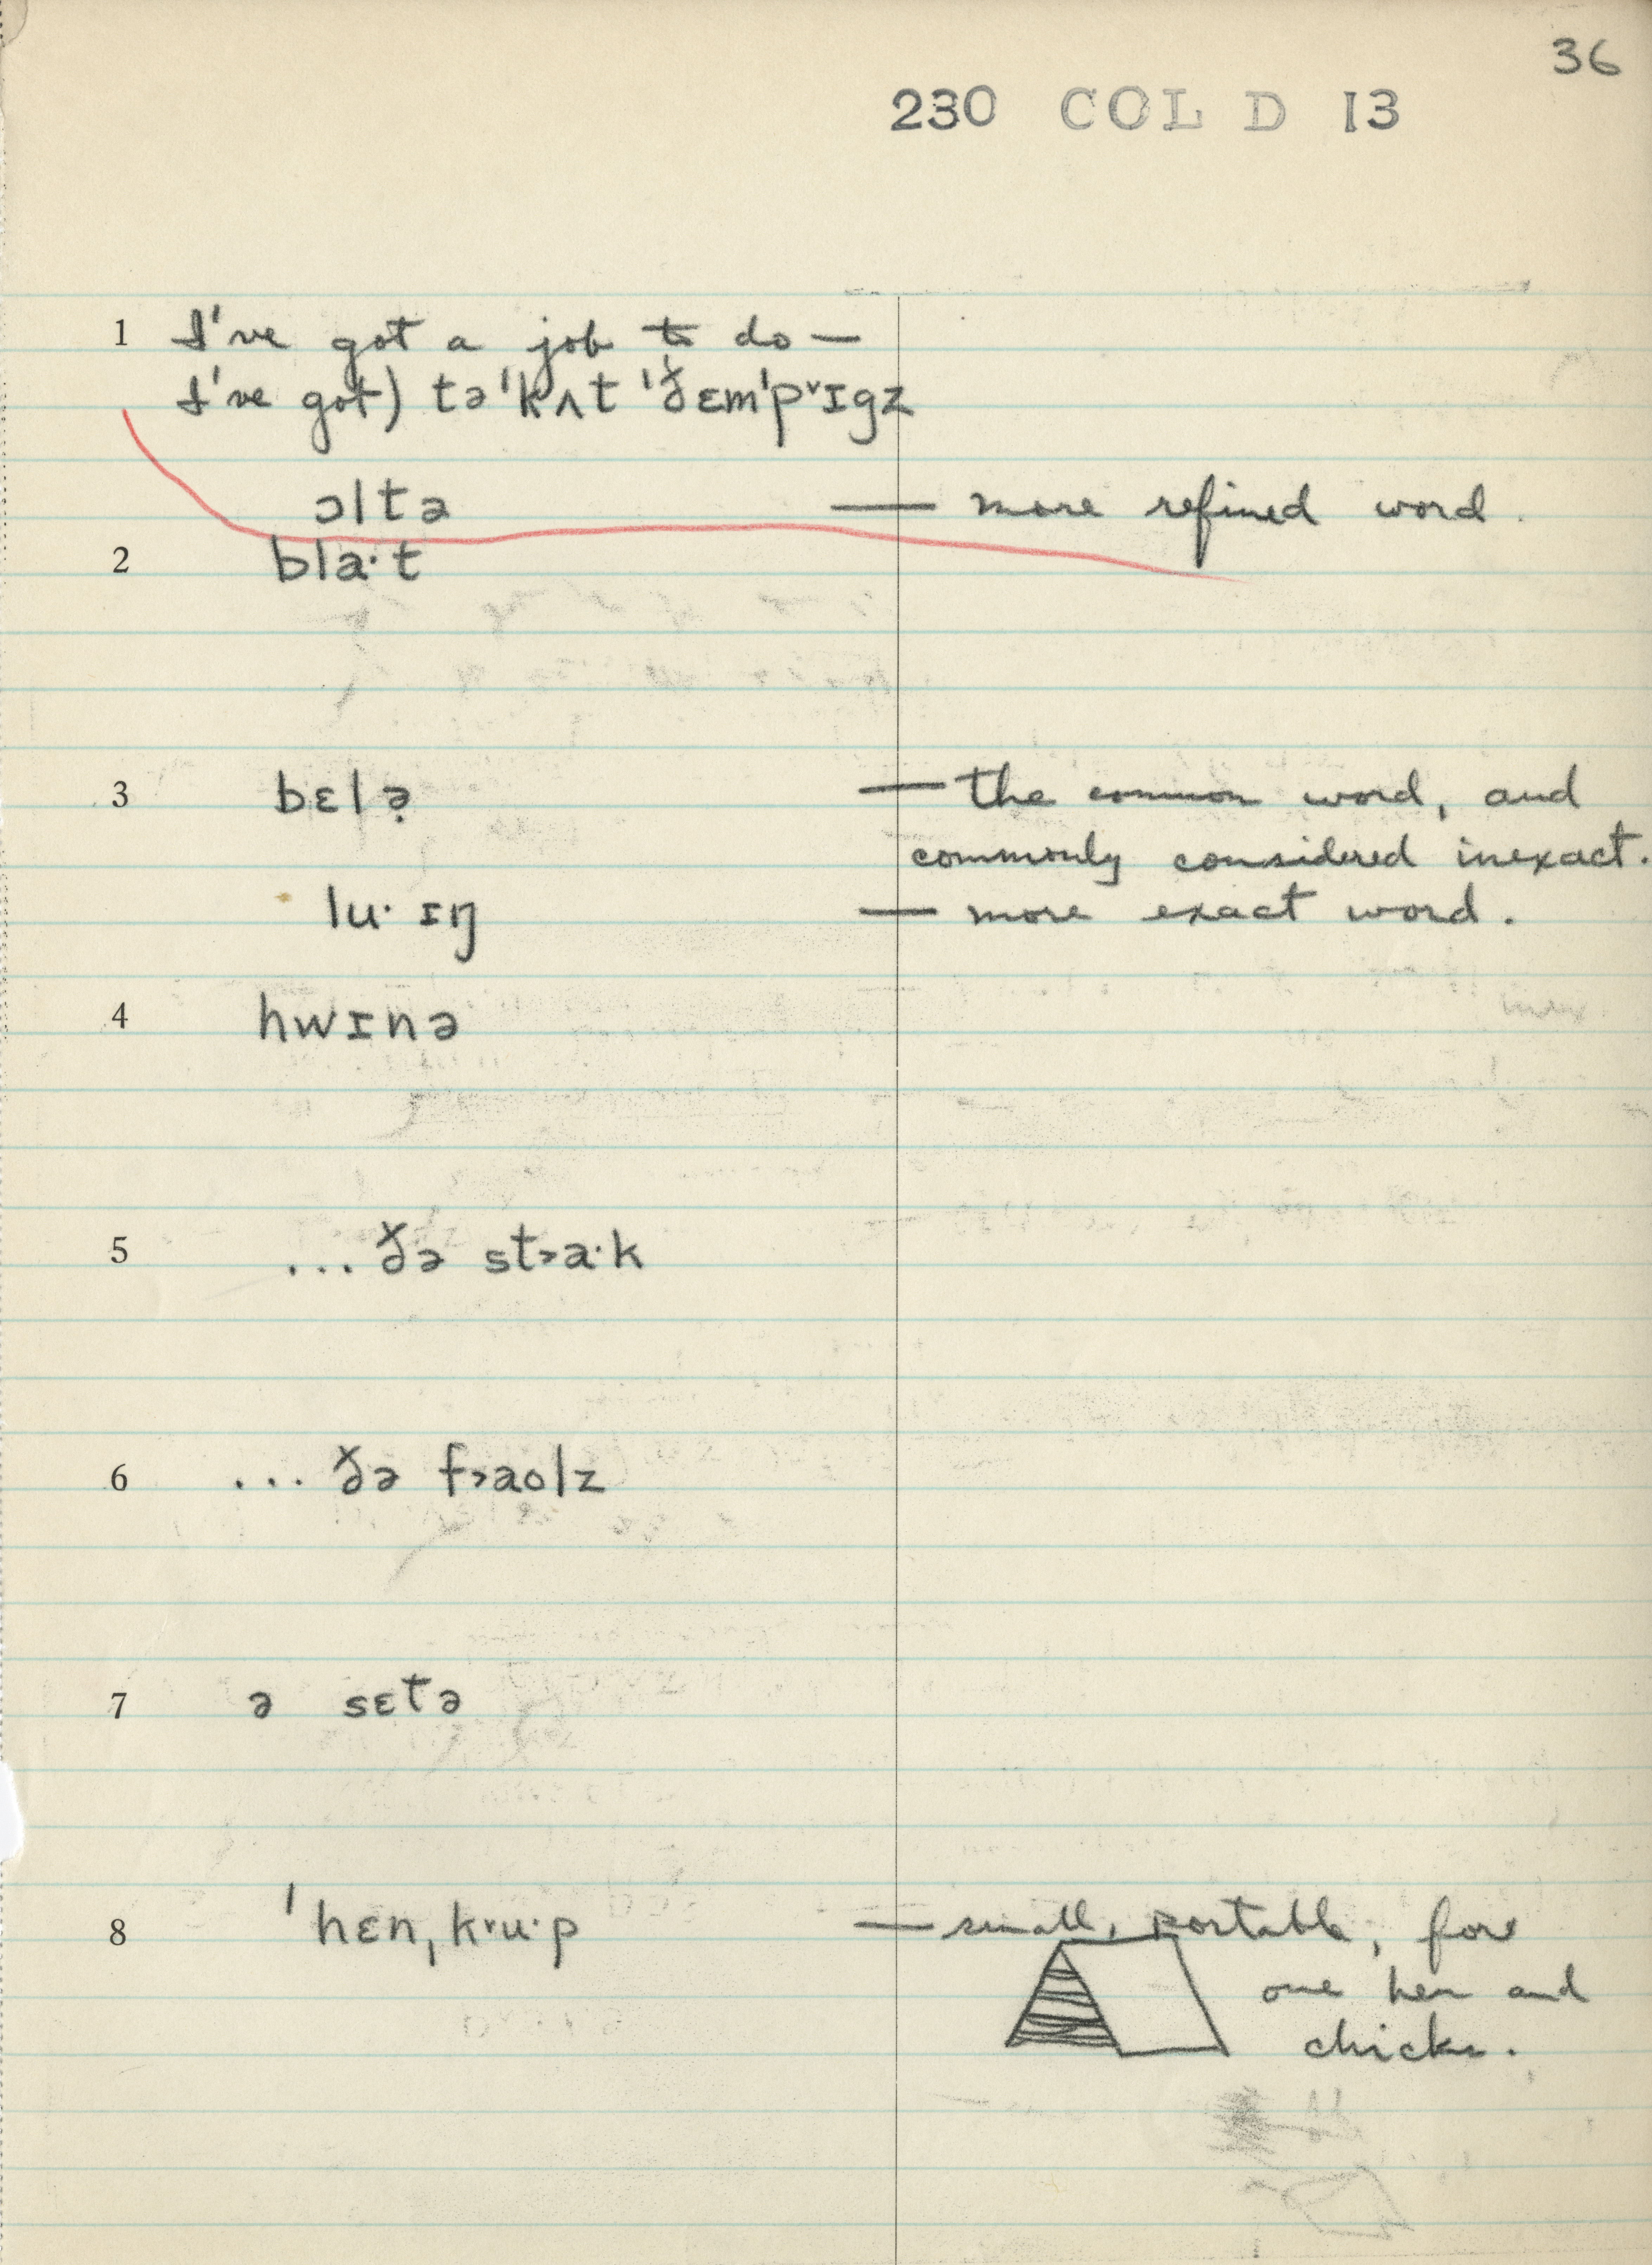 36
230 COL D 13
1 I've got a job to do —
I've got) tə'kʌt 'ðɛm'pᵛɪgz
ɔltə — more refined word.
2 bla·t
3 bɛlə̣ — the common word, and
commonly considered inexact.
lu·ɪŋ — more exact word.
4 hwɪnə
5 ... ðə st˃a·k
6 ... ðə f˃aolz
7 ə sɛtə
8 'hɛn,kᵛu·p — small, portable, for
one hen and
chicks.